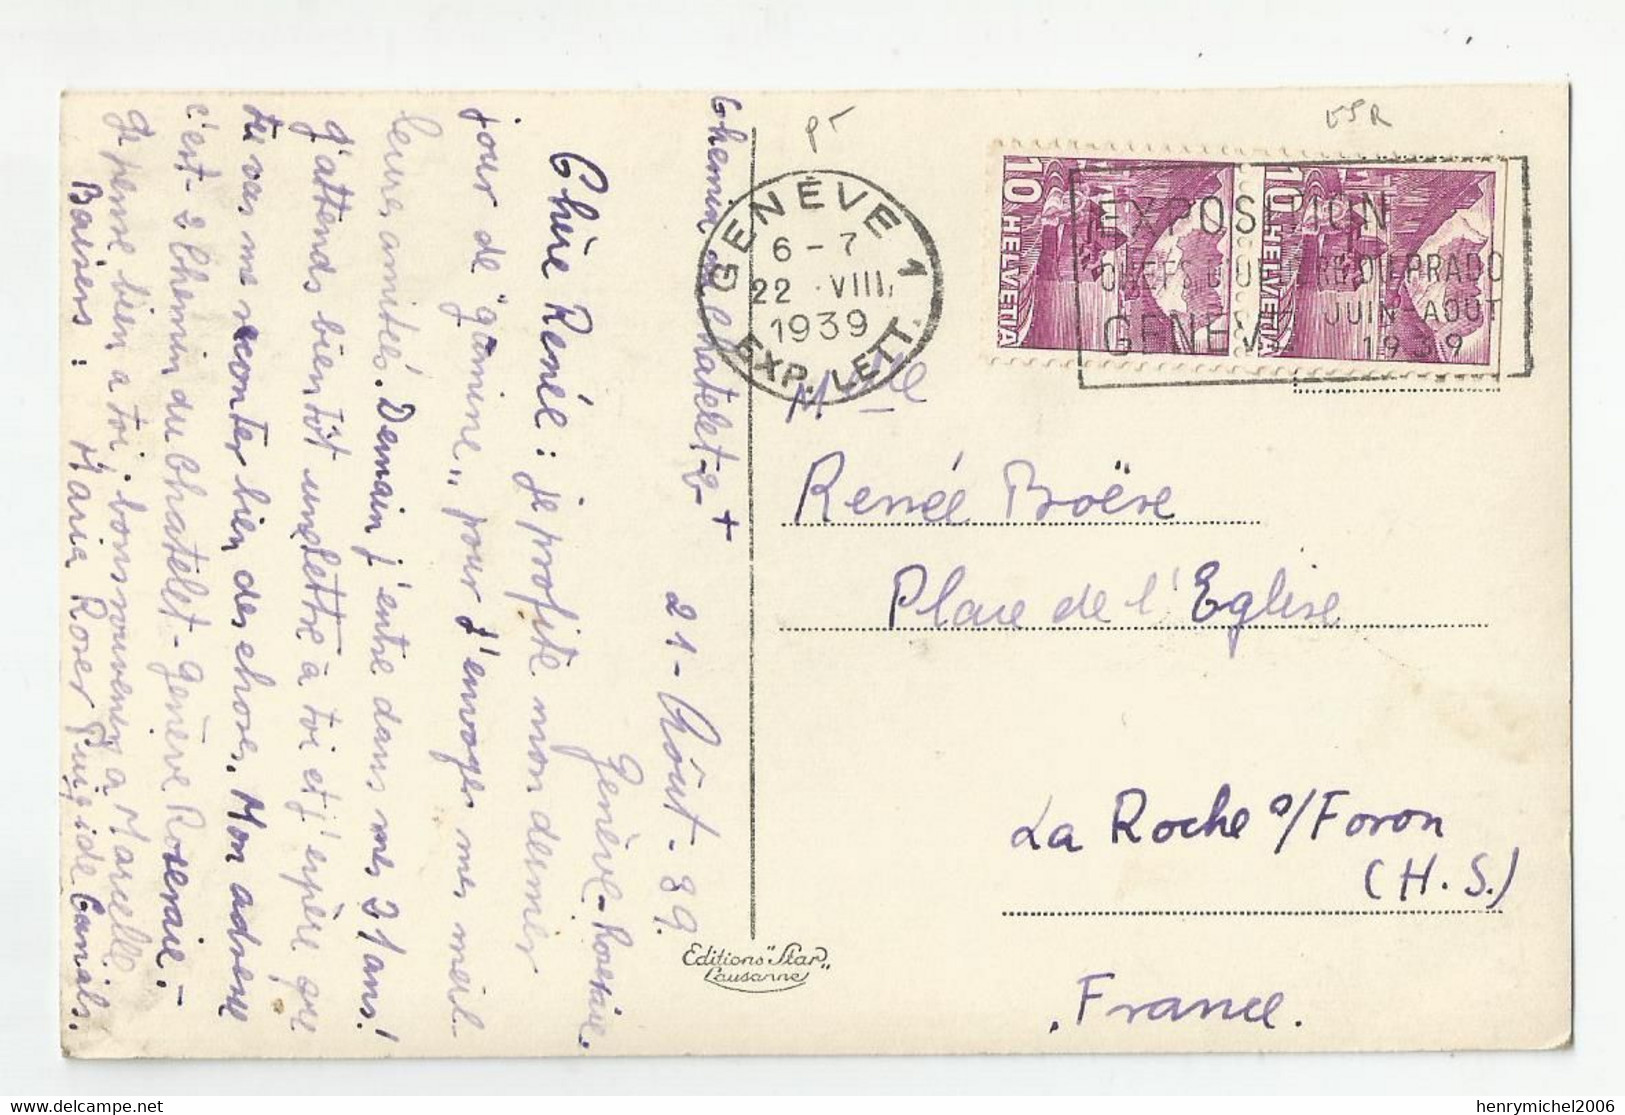 Chemin du Chatelet-2-
+
21-Aôut-39.
Genève-Roseraie.
Chère Renée: je profite mon dernier
jour de "gamine" pour t'envoyer mes meil-
leures amitiés. Demain j'entre dans mes 21 ans!
J'attends bientôt une lettre à toi et j'espère que
tu vas me raconter bien des choses. Mon adresse
c'est-2 Chemin du Chatelet-Genève Roseraie.-
Je pense bien a toi. bons souvenirs a Marcelle
Baisers: Maria Roser Puig ide Canals.
Editions "Star"
Lausanne
PT
ESR
GENÈVE 1
6-7
22.VIII.
1939
EXP. LETT.
10 HELVETIA
10 HELVETIA
EXPOSITION
CHEFS D'OEUVRE DU PRADO
JUIN-AOUT
GENEVE 1939
Mlle
Renée Broëse
Place de l'Eglise
La Roche s/Foron
(H.S.)
France.
henrymichel2006